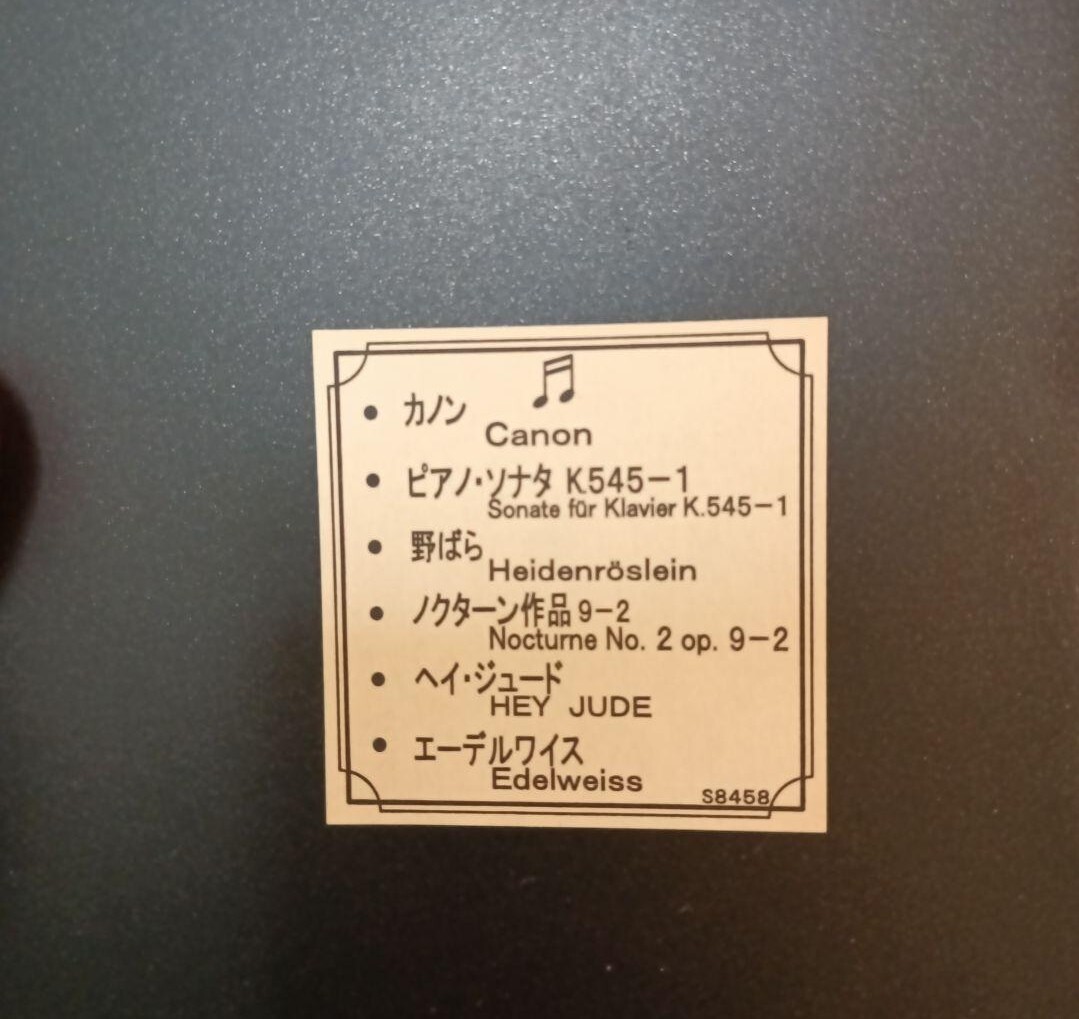 カノン
Canon
ピアノ・ソナタ K.545-1
Sonate für Klavier K.545-1
野ばら
Heidenröslein
ノクターン作品 9-2
Nocturne No. 2 op. 9-2
ヘイ・ジュード
HEY JUDE
エーデルワイス
Edelweiss
S8458